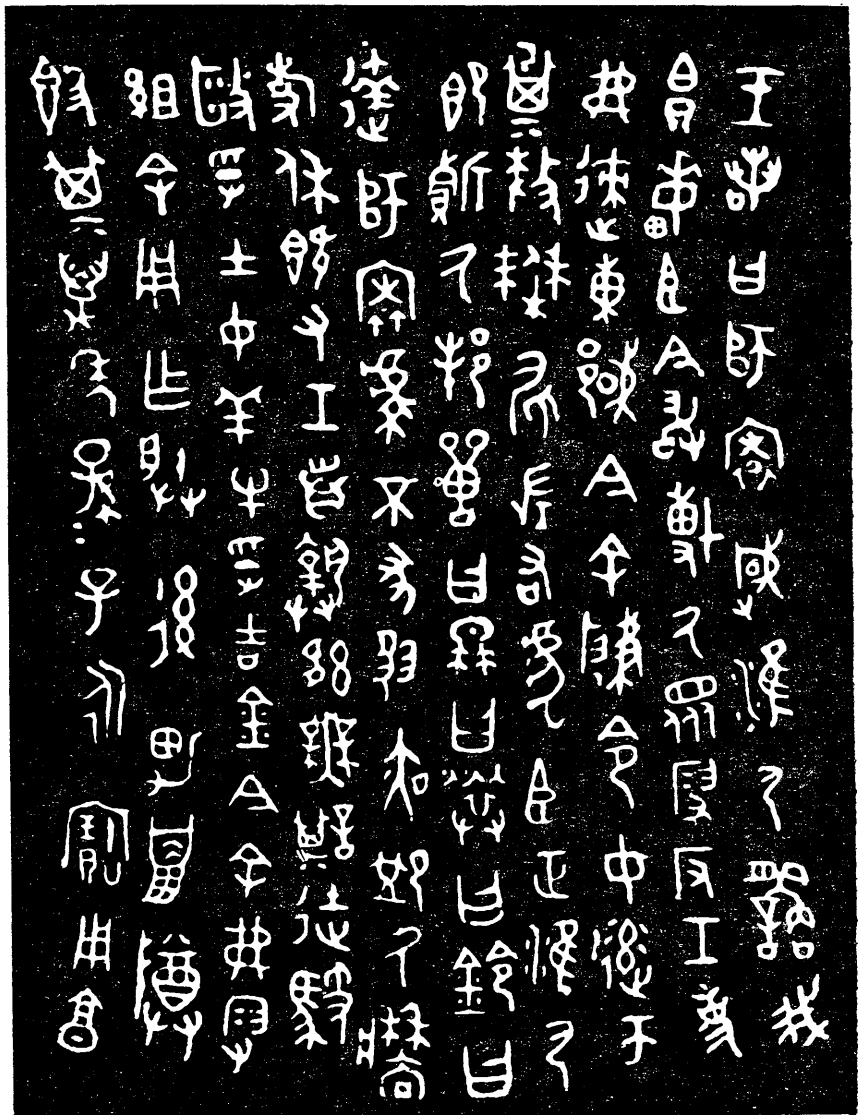 王若曰師㝨淢淮尸繇我
帛畮臣今敢博氒眾叚反工吏
弗速東國今余肇令女達齊帀
㠱釐僰左右虎臣正淮尸
即質氒邦獸曰冉曰䇦曰鈴曰
達師㝨虔不彖夙夜卹氒牆
事休既又工折首執訊無諆徒馭
毆孚士女羊牛孚吉金今余弗叚
組余用乍朕後男巤尊
簋其萬年孫=子=永寶用享